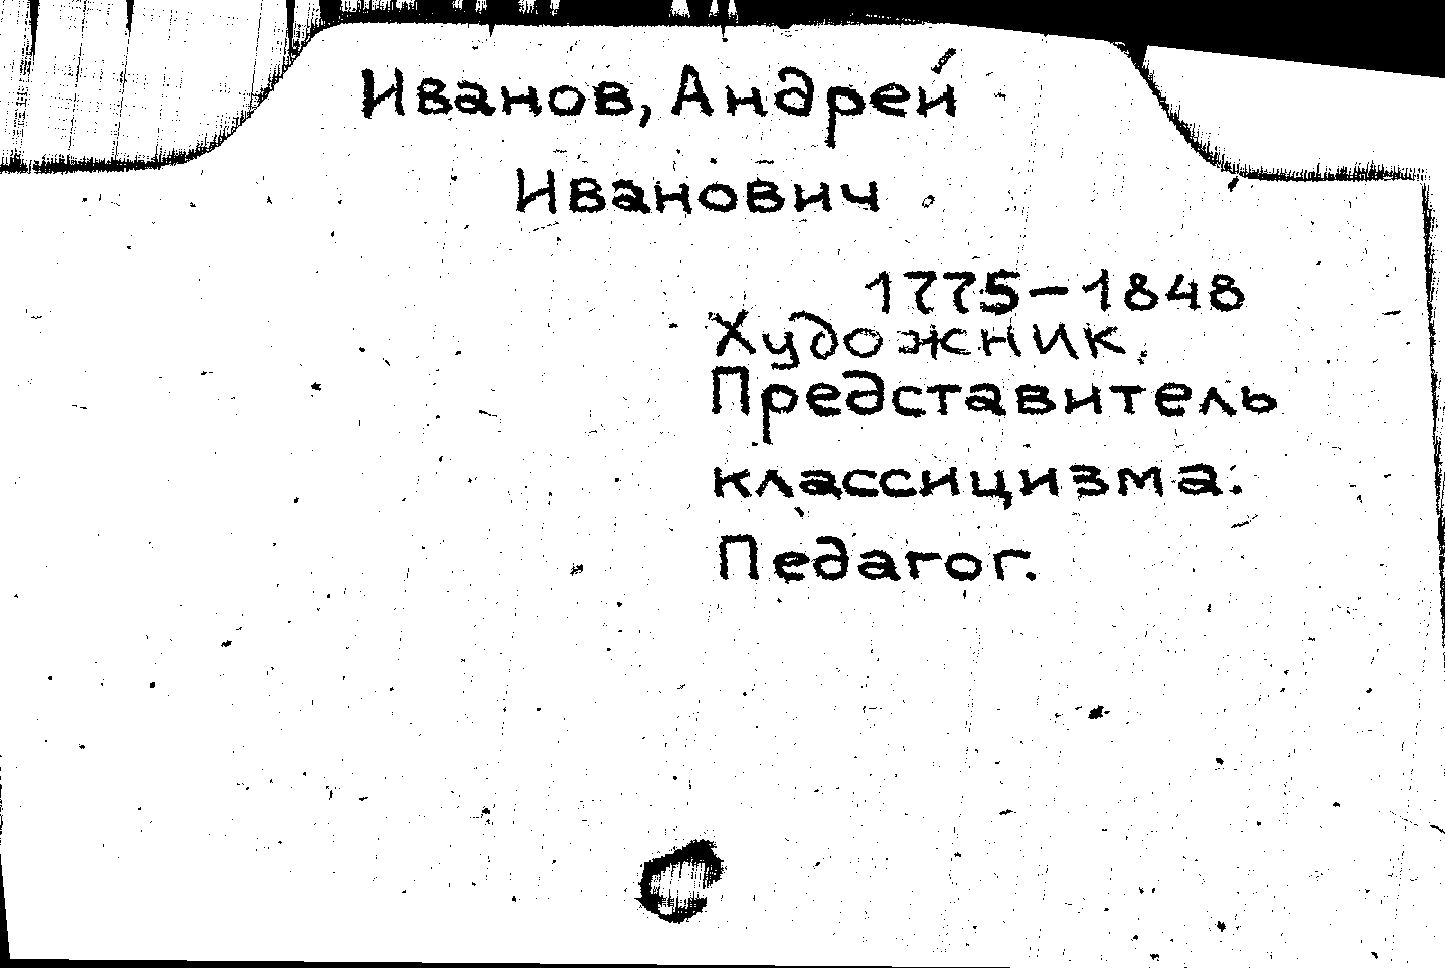 Иванов, Андрей
Иванович
1775-1848
Художник.
Представитель
классицизма.
Педагог.